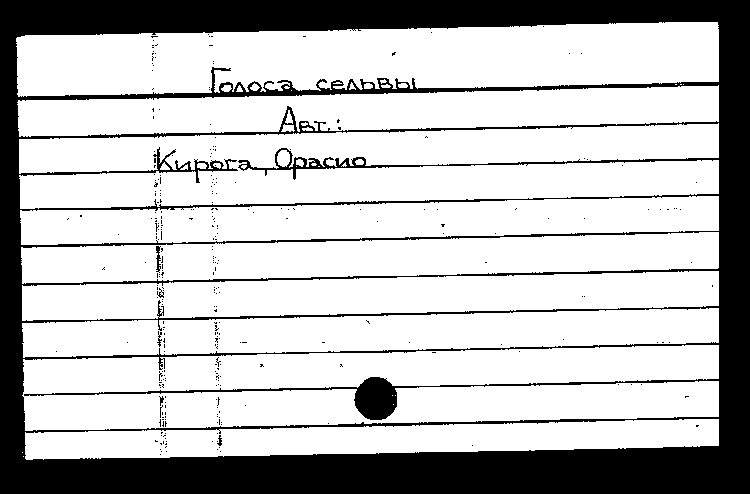 Голоса сельвы
Авт.:
Кирога, Орасио